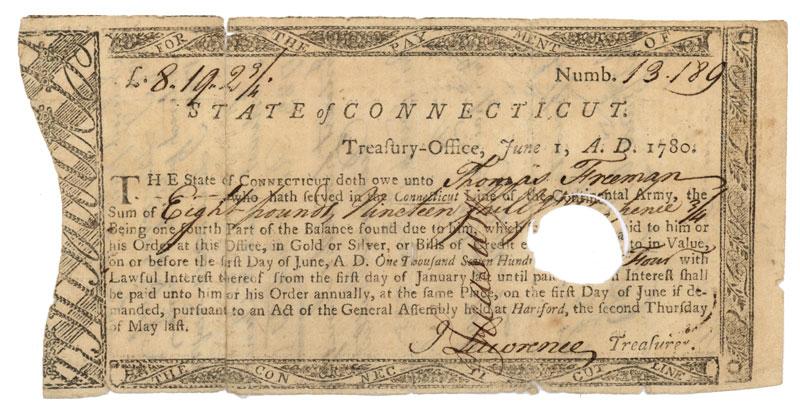 FOR THE PAYMENT OF
£.8.19..2 3/4. Numb. 13.189
STATE of CONNECTICUT.
Treaſury-Office, June 1, A. D. 1780.
THE State of CONNECTICUT doth owe unto Thomas Freeman
who hath ſerved in the Connecticut Line of the Continental Army, the
Sum of Eight pounds, Nineteen pence 3/4
Being one fourth Part of the Balance found due to him, which id to him or
his Order at this Office, in Gold or Silver, or Bills of to in Value,
on or before the firſt Day of June, A. D. One Thouſand Seven Hund Four with
Lawful Intereſt thereof from the firſt day of January laſt until pai Intereſt ſhall
be paid unto him or his Order annually, at the ſame Place, on the firſt Day of June if de-
manded, purſuant to an Act of the General Aſſembly held at Hartford, the ſecond Thurſday
of May laſt.
J Lawrence Treaſurer.
THE CONNECTICUT LINE